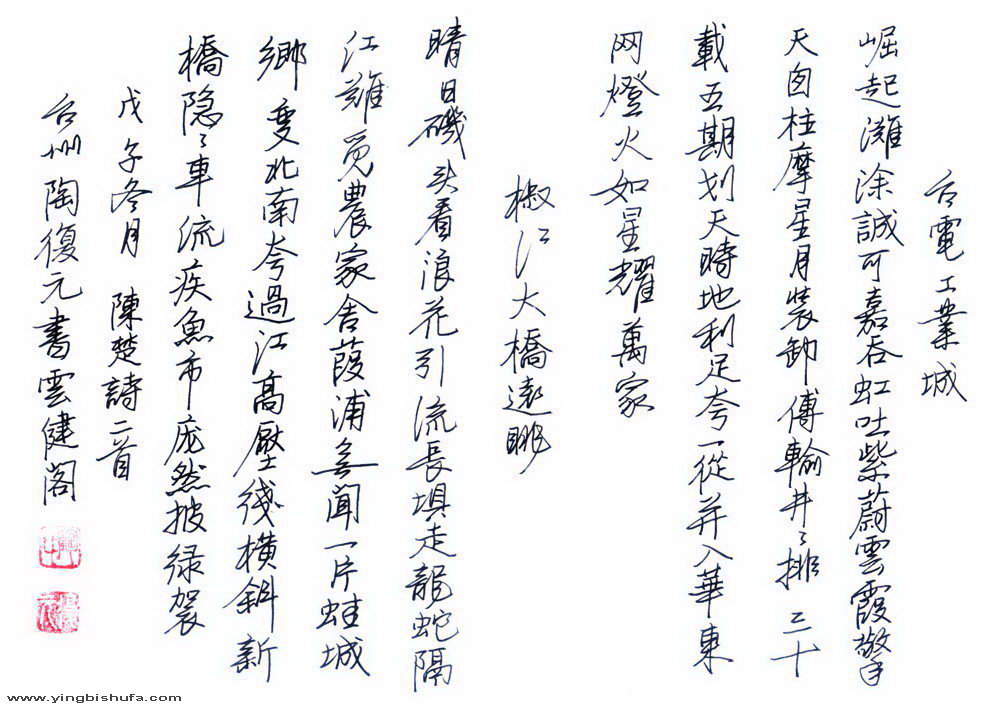 台電工業城
崛起灘涂誠可嘉吞虹吐紫蔚雲霞擎
天囱柱摩星月裝卸傳輸井々排三十
載五期划天時地利足夸一從并入華東
网燈火如星耀萬家
椒江大橋遠眺
晴日磯头看浪花引流長埧走龍蛇隔
江難覓農家舍葭浦無聞一片蛙城
鄉變北南夸過江高壓綫橫斜新
橋隐々車流疾魚市庞然披绿袈
戊子冬月 陳楚詩二首
台州陶復元書雲健阁
www.yingbishufa.com